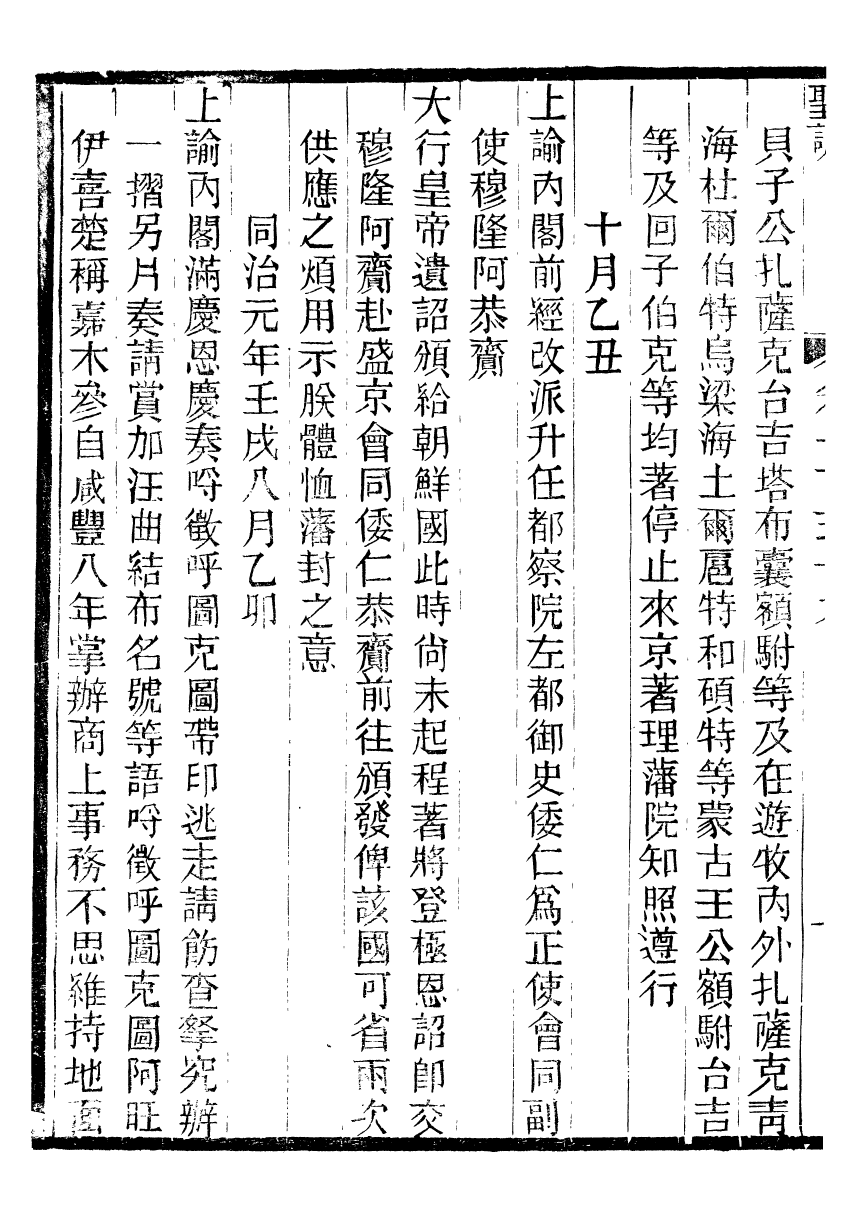 聖訓
貝子公扎薩克台吉塔布囊額駙等及在游牧內外扎薩克靑
海杜爾伯特烏梁海土爾扈特和碩特等蒙古王公額駙台吉
等及回子伯克等均著停止來京著理藩院知照遵行
十月乙丑
上諭內閣前經改派升任都察院左都御史倭仁爲正使會同副
使穆隆阿恭齎
大行皇帝遺詔頒給朝鮮國此時尙未起程著將登極恩詔卽交
穆隆阿齎赴盛京會同倭仁恭齎前往頒發俾該國可省兩次
供應之煩用示朕體恤藩封之意
同治元年壬戌八月乙卯
上諭內閣滿慶恩慶奏哷徵呼圖克圖帶印逃走請飭查拏究辦
一摺另片奏請賞加汪曲結布名號等語哷徵呼圖克圖阿旺
伊喜楚稱嘉木參自咸豐八年掌辦商上事務不思維持地面